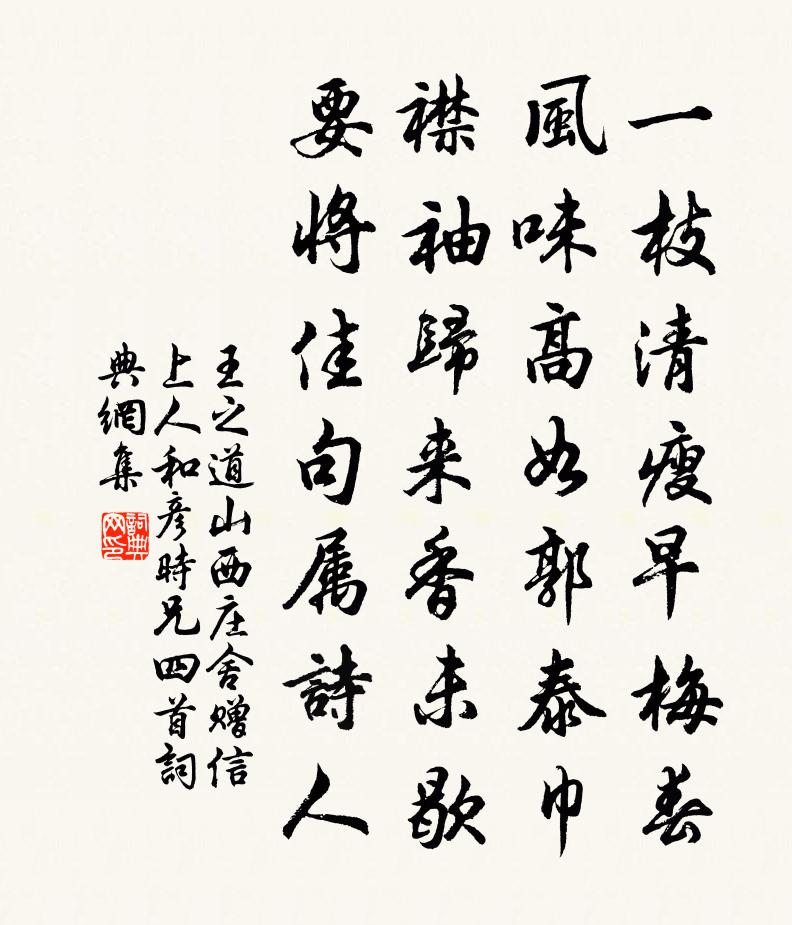 一枝清瘦早梅春
風味高如郭泰巾
襟袖歸来香未歇
要將佳句属詩人
王之道山西庄舍赠信
上人和彦時兄四首詞
典網集
詞典网印